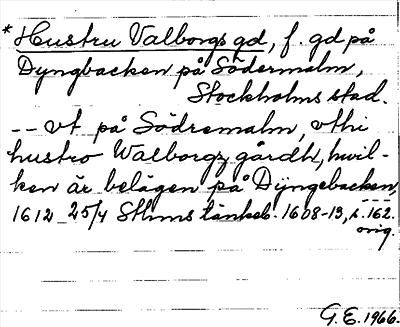 * Hustru Valborgs gd, f. gd på
Dyngbacken på Södermalm,
Stockholms stad.
-- vt på Södremalm, vthi
hustro Walborgz gårdh, hwil-
ken är belägen på Dÿngebacken,
1612 25/4 Sthms tänkeb. 1608-13, s. 162.
orig.
G.E. 1966.